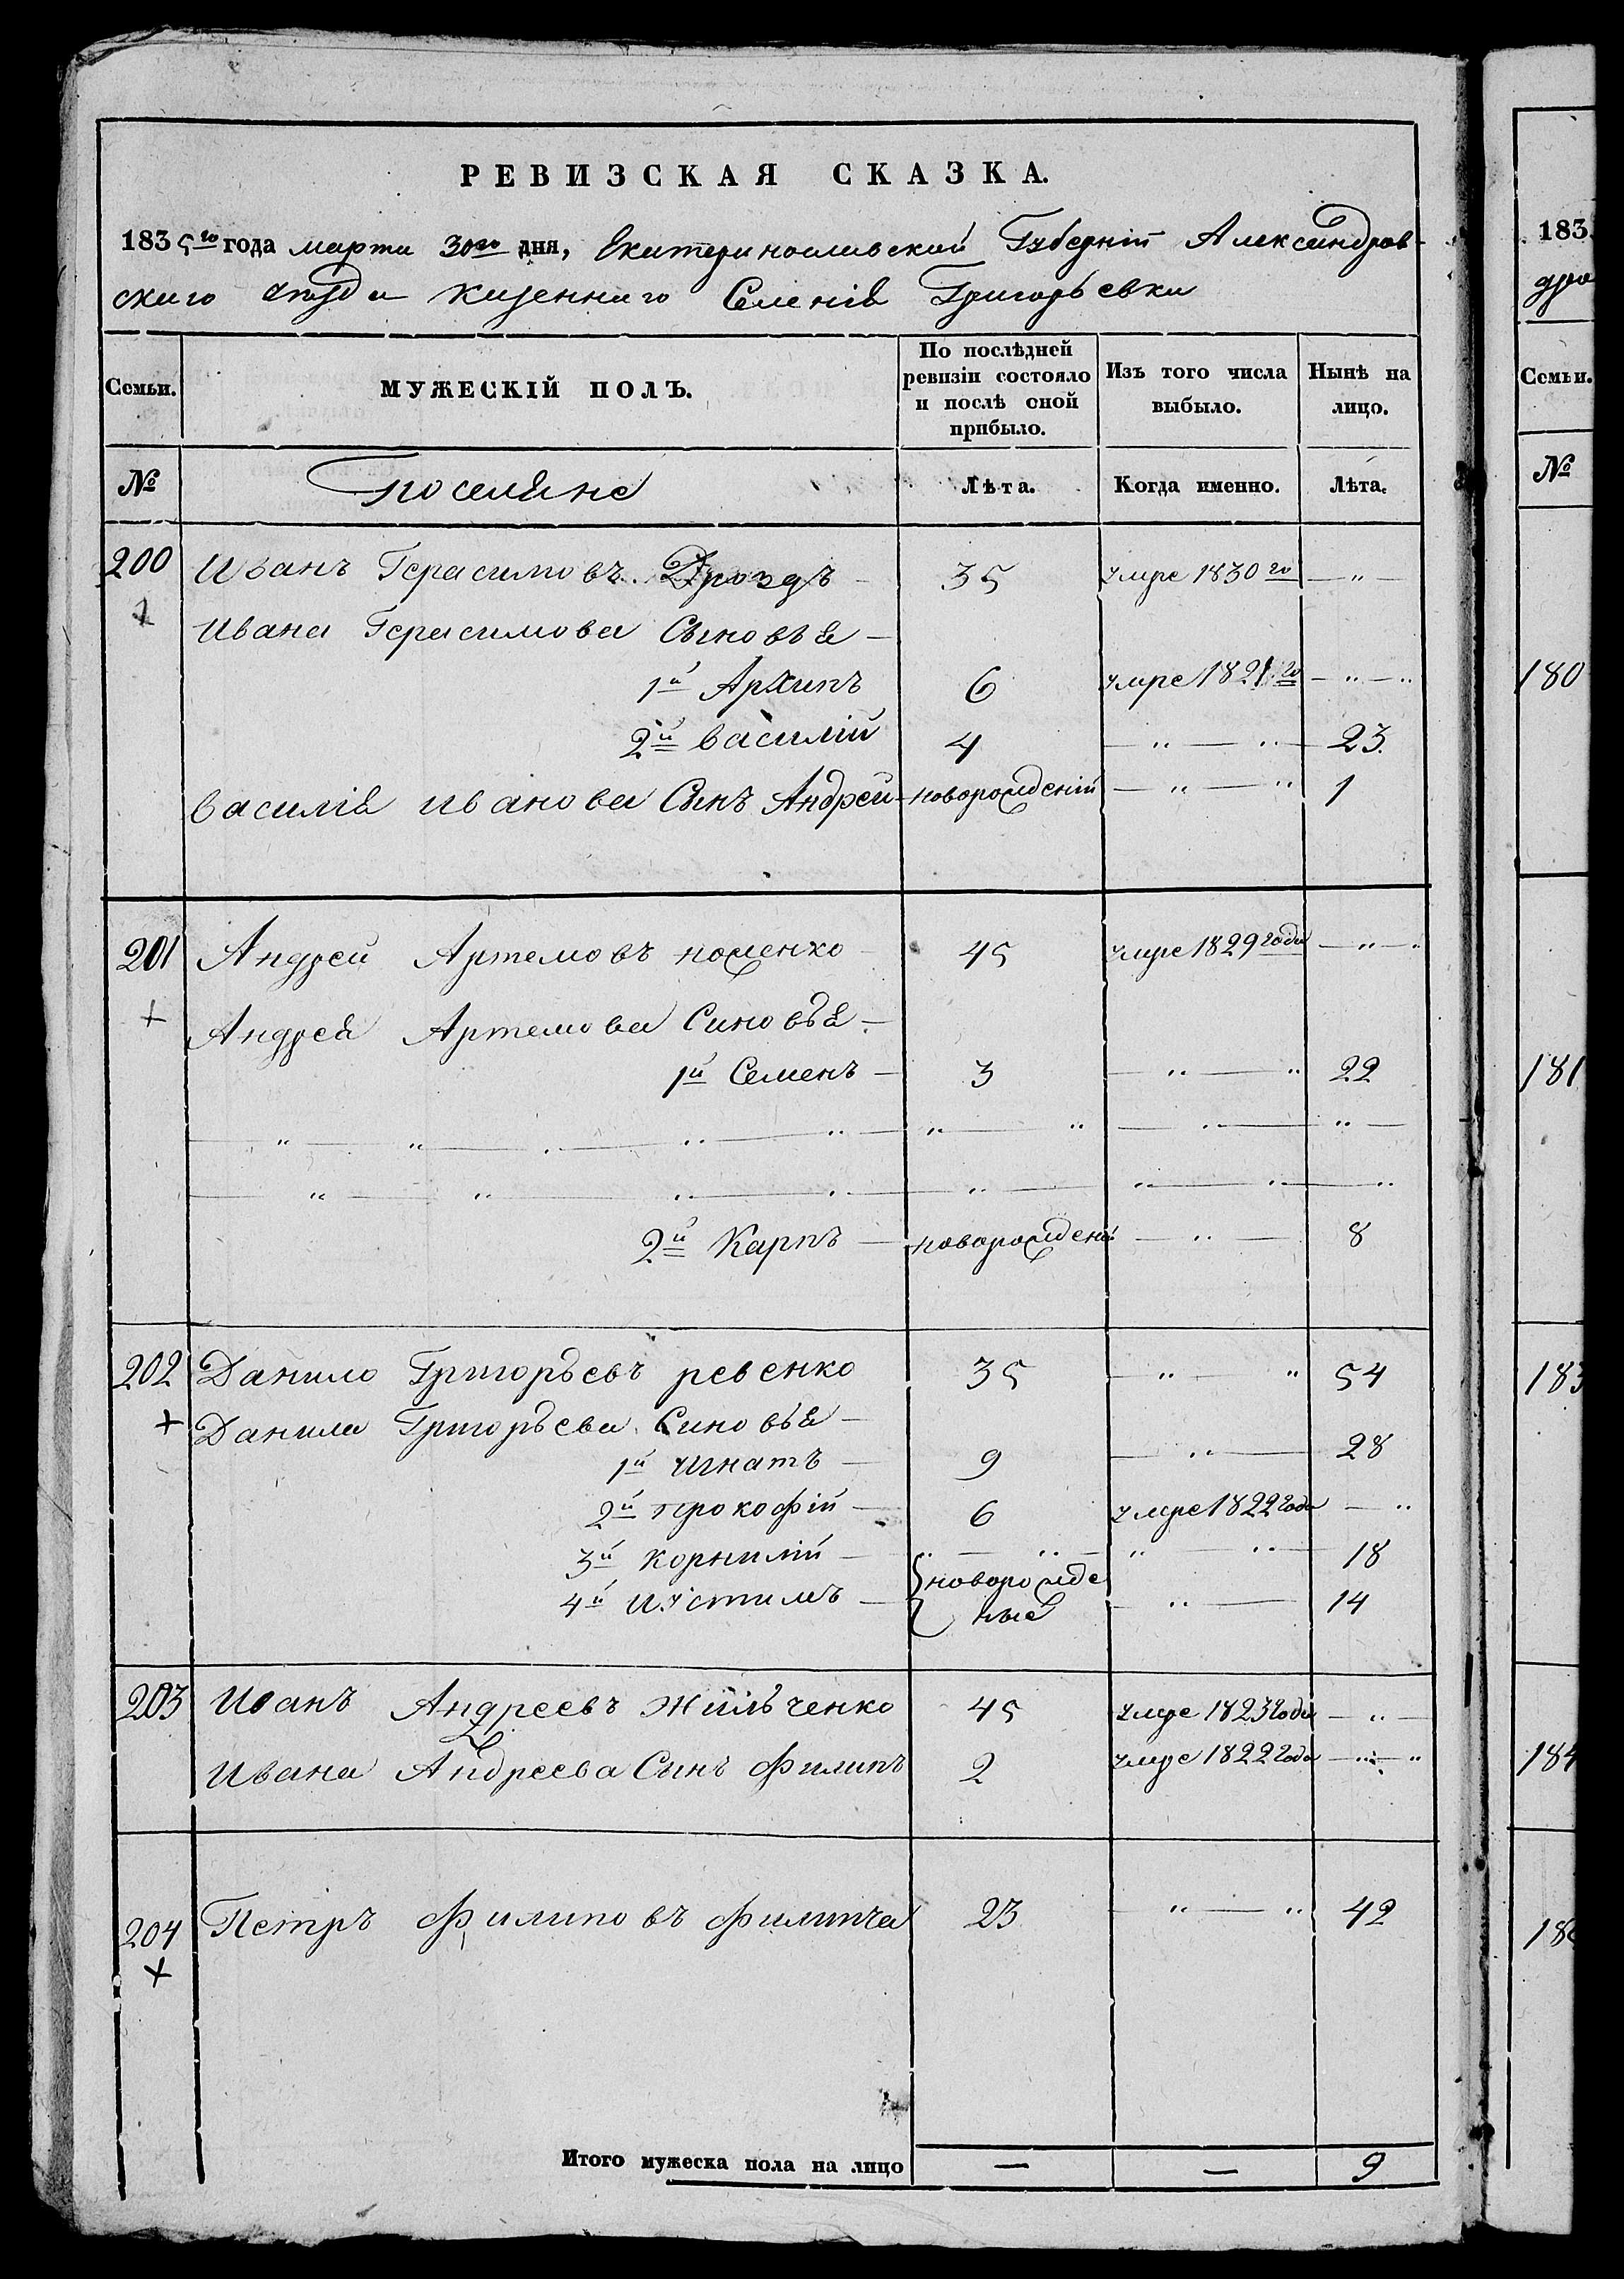 РЕВИЗСКАЯ СКАЗКА.
1835го года марта 30го дня, Екатеринославской Губерніи Александров-
скаго уезда казеннаго Селенія Григорьевки
Семьи. МУЖЕСКІЙ ПОЛЪ. По послѣдней ревизіи состояло и послѣ оной прибыло. Изъ того числа выбыло. Нынѣ на лицо.
№ Поселяне Лѣта. Когда именно. Лѣта.
200 Иванъ Герасимовъ Дроздъ 35 умре 1830го — "
+ Ивана Герасимова Сыновья —
1й Архипъ 6 умре 1821го — " — "
2й Василій 4 — " — " — 23.
Василія Иванова Сынъ Андрей — новорожденій — " — " 1
201 Андрей Артемовъ ноженко 45 умре 1829 года — " — "
+ Андрея Артемова Синовья —
1й Семенъ — 3 — " — " 22
— " — " — " — " — " — " — " — " —
— " — " — " — " — " — " — " — "
2й Карпъ — новорожденій — " — 8
202 Данило Григорьевъ ревенко 35 — " — " 54
+ Данила Григорьева Синовья —
1й Игнатъ — 9 — " — 28
2й Прокофій — 6 умре 1822 года — "
3й Корнилій — " — " — " — " — 18
4й Иустимъ — новорожде ные — " — 14
203 Иванъ Андреевъ Жильченко 45 умре 1823 года — " —
Ивана Андреева Сынъ Филипъ 2 умре 1822 года — " — "
204 Петръ Филиповъ Филипча 23 — " — " 42
+
Итого мужеска пола на лицо — — 9
183
дро
Семьи.
№
180
181
183
184
18